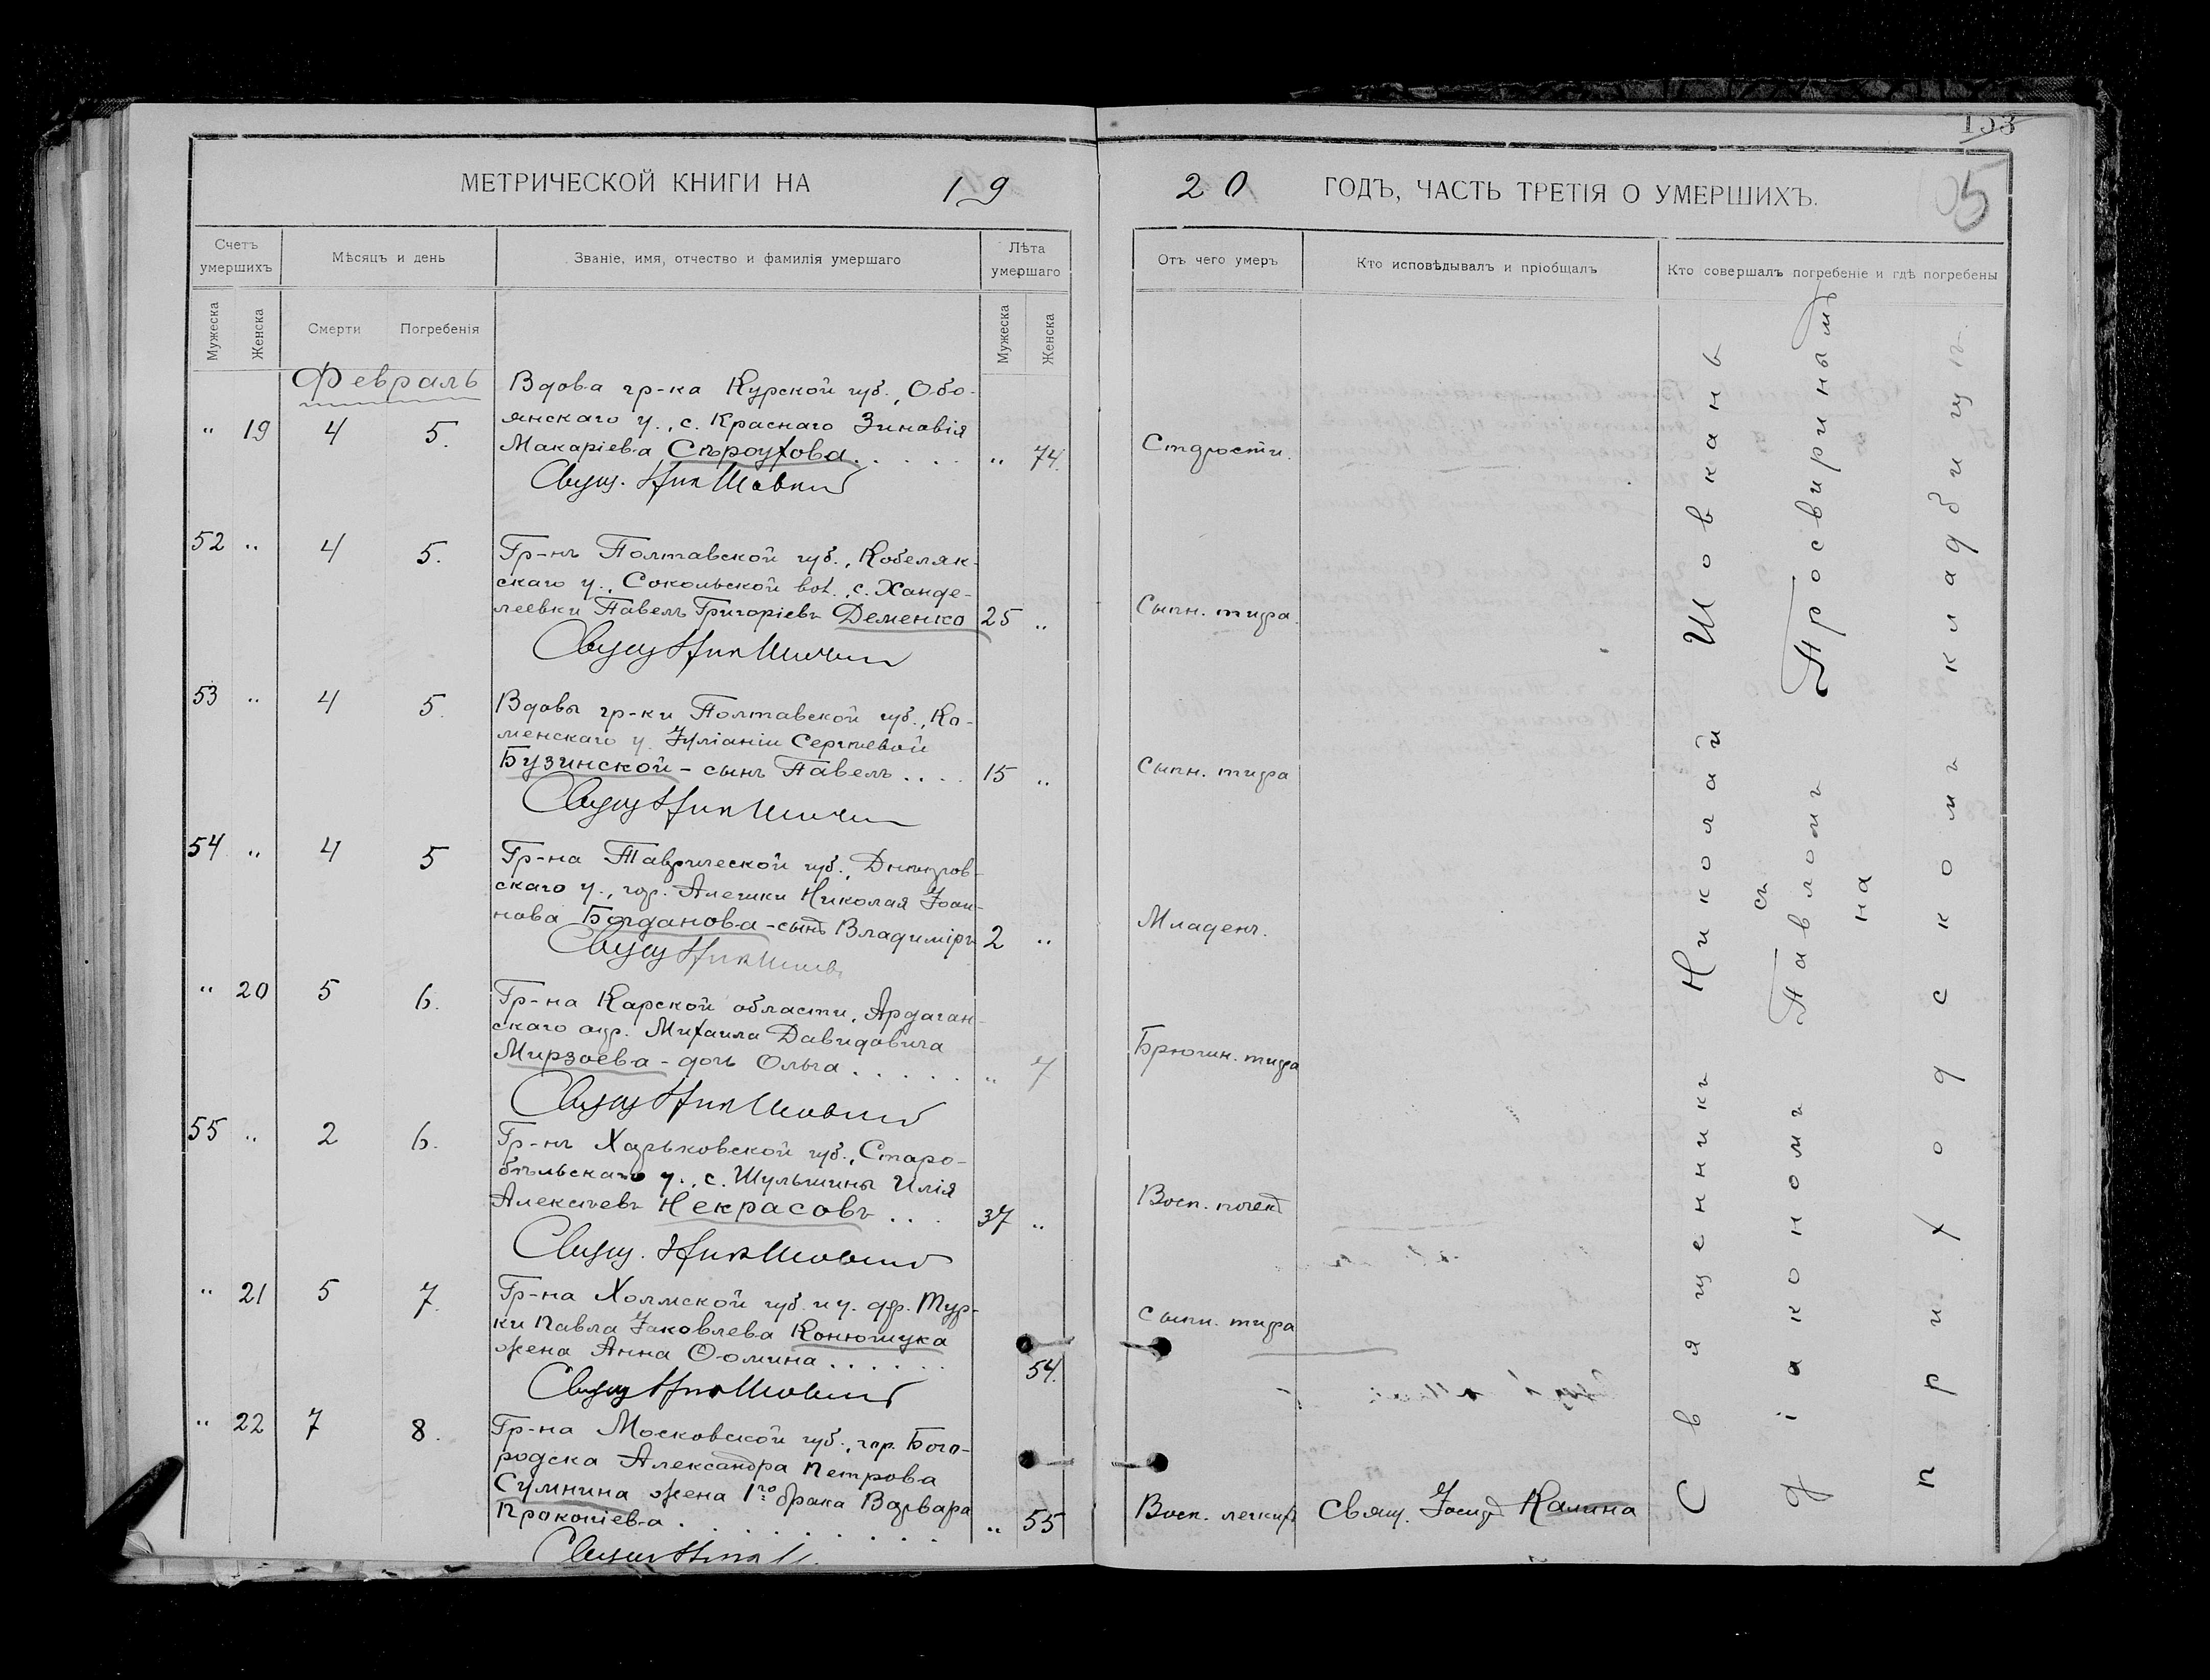 153
5
МЕТРИЧЕСКОЙ КНИГИ НА 19
20 ГОДЪ, ЧАСТЬ ТРЕТІЯ О УМЕРШИХЪ.
Счетъ умершихъ
Мѣсяцъ и день
Званіе, имя, отчество и фамилія умершаго
Лѣта умершаго
Отъ чего умеръ
Кто исповѣдывалъ и пріобщалъ
Кто совершалъ погребеніе и гдѣ погребены
Мужеска
Женска
Смерти
Погребенія
Мужеска
Женска
Февраль
Вдова гр-ка Курской губ., Обо-
„ 19 4 5. янскаго у., с. Краснаго Зиновія
Макаріева Сѣроухова. . . . . „ 74. Старости.
Свящ. Ник Шовкан
52 „ 4 5. Гр-нъ Полтавской губ., Кобеляк-
скаго у., Сокольской вол., с. Ханде-
леевки Павелъ Григоріевъ Деменко 25 „ Сыпн. тифа.
Свящ Ник
53 „ 4 5. Вдовы гр-ки Полтавской губ., Ко-
менскаго у. Іуліаніи Сергѣевой
Бузинской - сынъ Павелъ . . . . 15 „ Сыпн. тифа
Свящ Ник
54 „ 4 5 Гр-на Таврической губ., Днѣпров-
скаго у., гор. Алешки Николая Іоан-
нова Богданова - сынъ Владиміръ 2 „ Младенч.
Свящ Ник
„ 20 5 6. Гр-на Карской области, Ардаган-
скаго окр. Михаила Давидовича
Мирзоева - дочь Ольга . . . . . „ 7 Брюшн. тифа
Свящ Ник
55 „ 2 6. Гр-нъ Харьковской губ., Старо-
бѣльскаго у., с. Шульгины Илія
Алексѣевъ Некрасовъ . . . 37 „ Восп. почекъ
Свящ. Ник
„ 21 5 7. Гр-на Холмской губ. и у. дер. Тур-
ки Павла Іаковлева Конюшука
жена Анна Ѳомина . . . . . . 54. Сыпн. тифа
Свящ Ник
„ 22 7 8. Гр-на Московской губ., гор. Бого-
родска Александра Петрова
Сумнина жена 1го брака Варвара
Прокопіева . . . . . . . . . „ 55 Восп. легкихъ Свящ. Іосифъ Калина
Свящ
Священникъ Николай Шовканъ
съ
діакономъ Павломъ Просвиринымъ
на
приходскомъ кладбищѣ.